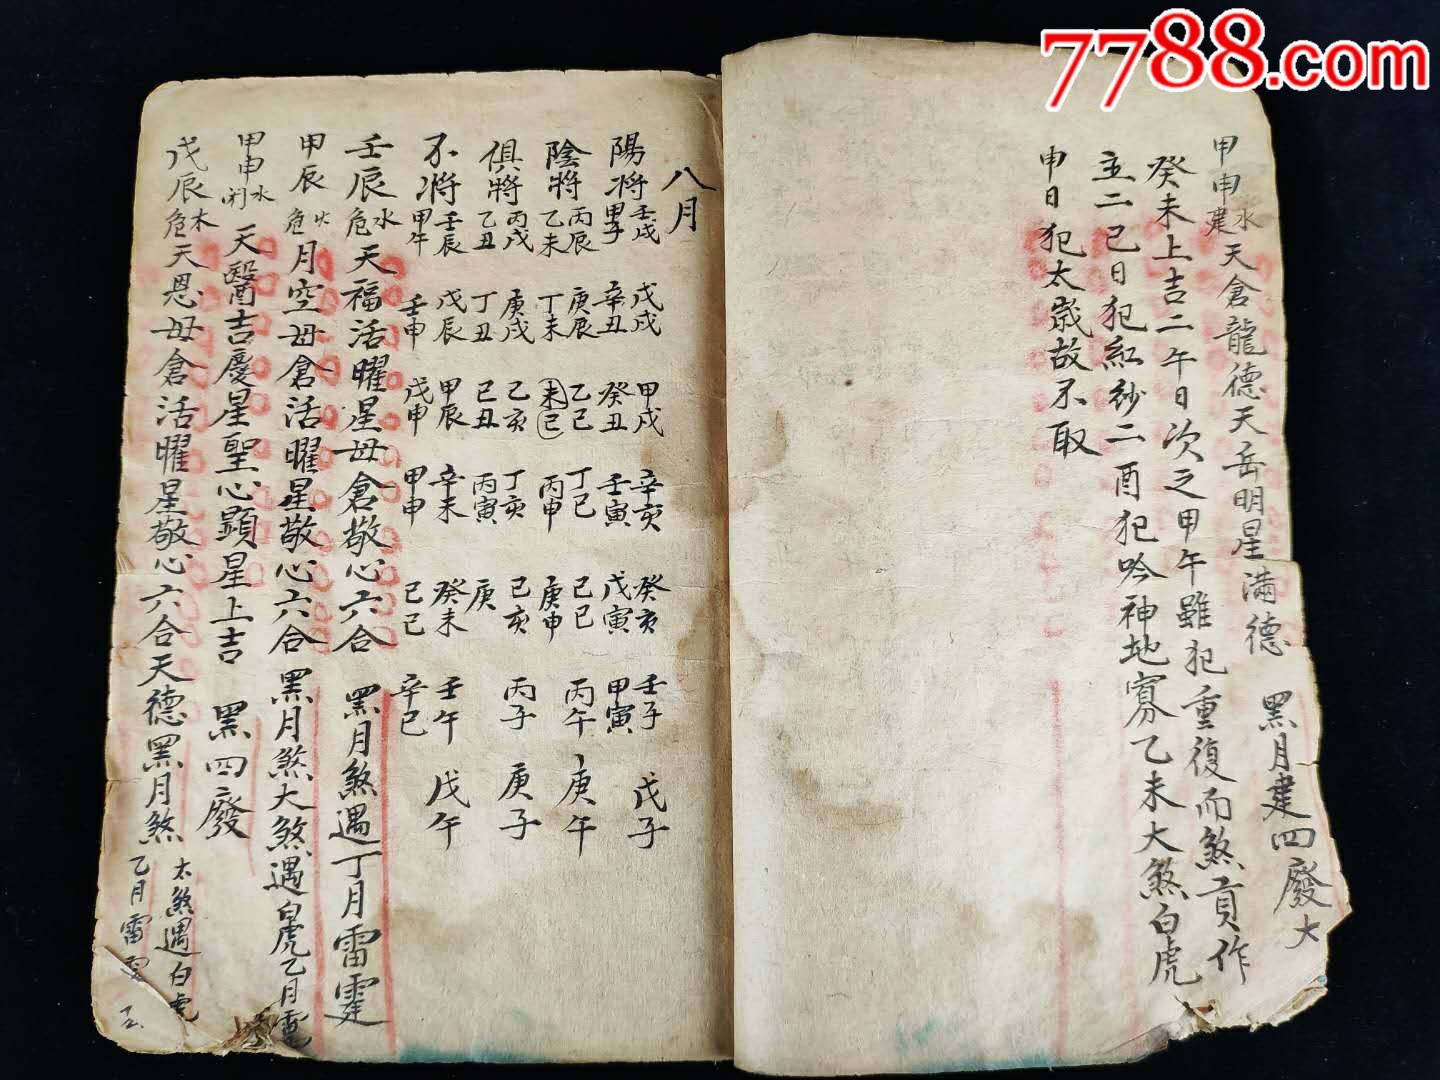 7788.com
甲申水建天倉龍德天岳明星滿德 黑月建四廢大
癸未上吉二午日次之甲午雖犯重復而煞貢作
主二巳日犯紅紗二酉犯吟神地寡乙未大煞白虎
申日犯太歲故不取
八月
陽將 壬戌 戊戌 甲戌 辛亥 癸亥 壬子 戊子
甲子 辛丑 癸丑 壬寅 戊寅 甲寅
陰將 丙辰 庚辰 乙巳 丁巳 己巳 丙午 庚午
乙未 丁未 未己 丙申 庚申
俱將 丙戌 庚戌 乙亥 丁亥 己亥 丙子 庚子
乙丑 丁丑 己丑 丙寅 庚
不將 壬辰 戊辰 甲辰 辛未 癸未 壬午 戊午
甲午 壬申 戊申 甲申 己巳 辛巳
壬辰水危天福活曜星母倉敬心六合 黑月煞遇丁月雷霆
甲辰火危月空母倉活曜星敬心六合 黑月煞大煞遇白虎乙月雷霆
甲申水閉天醫吉慶星聖心顯星上吉 黑四廢
戊辰木危天恩母倉活曜星敬心六合天德黑月煞 大煞遇白虎
乙月雷霆